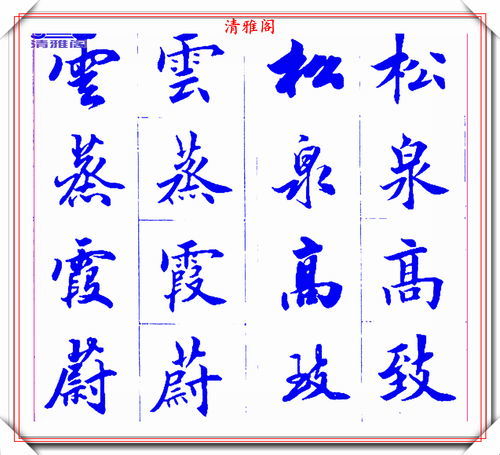 清雅阁
清雅阁
松泉高致
松泉高致
雲蒸霞蔚
雲蒸霞蔚